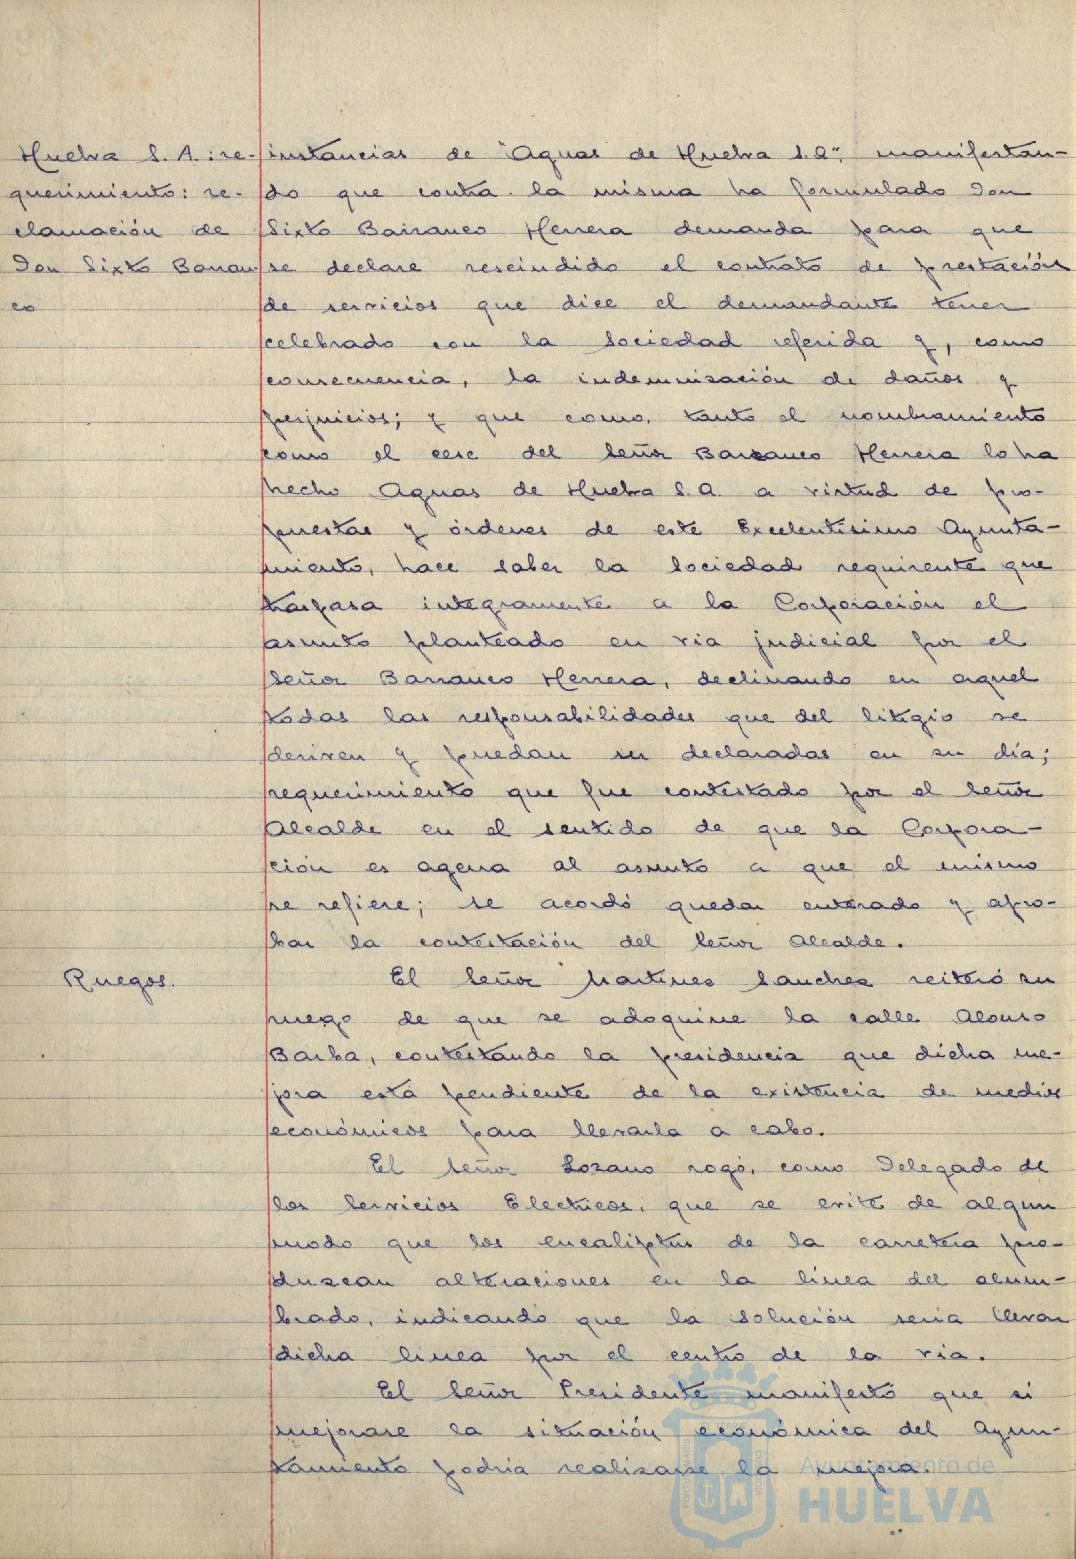 Huelva S. A.: re-
querimiento: re-
clamación de
Don Sixto Barran
co
instancias de "Aguas de Huelva S.A", manifestan-
do que contra la misma ha formulado Don
Sixto Barranco Herrera demanda para que
se declare rescindido el contrato de prestación
de servicios que dice el demandante tener
celebrado con la Sociedad referida y, como
consecuencia, la indemnización de daños y
perjuicios; y que como, tanto el nombramiento
como el cese del Señor Barranco Herrera lo ha
hecho Aguas de Huelva S.A. a virtud de pro-
puestas y órdenes de este Excelentísimo Ayunta-
miento, hace saber la Sociedad requirente que
traspasa integramente a la Corporación el
asunto planteado en via judicial por el
Señor Barranco Herrera, declinando en aquel
todas las responsabilidades que del litigio se
deriven y puedan ser declaradas en su día;
requerimiento que fue contestado por el Señor
Alcalde en el sentido de que la Corpora-
ción es agena al asunto a que el mismo
se refiere; se acordó quedar enterado y apro-
bar la contestación del Señor Alcalde.
Ruegos.
El Señor Martinez Sanchez reiteró su
ruego de que se adoquine la calle Alonso
Barba, contestando la presidencia que dicha me-
jora está pendiente de la existencia de medios
económicos para llevarla a cabo.
El Señor Lozano rogó, como Delegado de
los Servicios Electricos, que se evite de algun
modo que los eucaliptus de la carretera pro-
duzcan alteraciones en la línea del alum-
brado, indicando que la solución seria llevar
dicha linea por el centro de la via.
El Señor Presidente manifestó que si
mejorase la situación económica del Ayun-
tamiento podria realizarse la mejora.
Ayuntamiento de
HUELVA